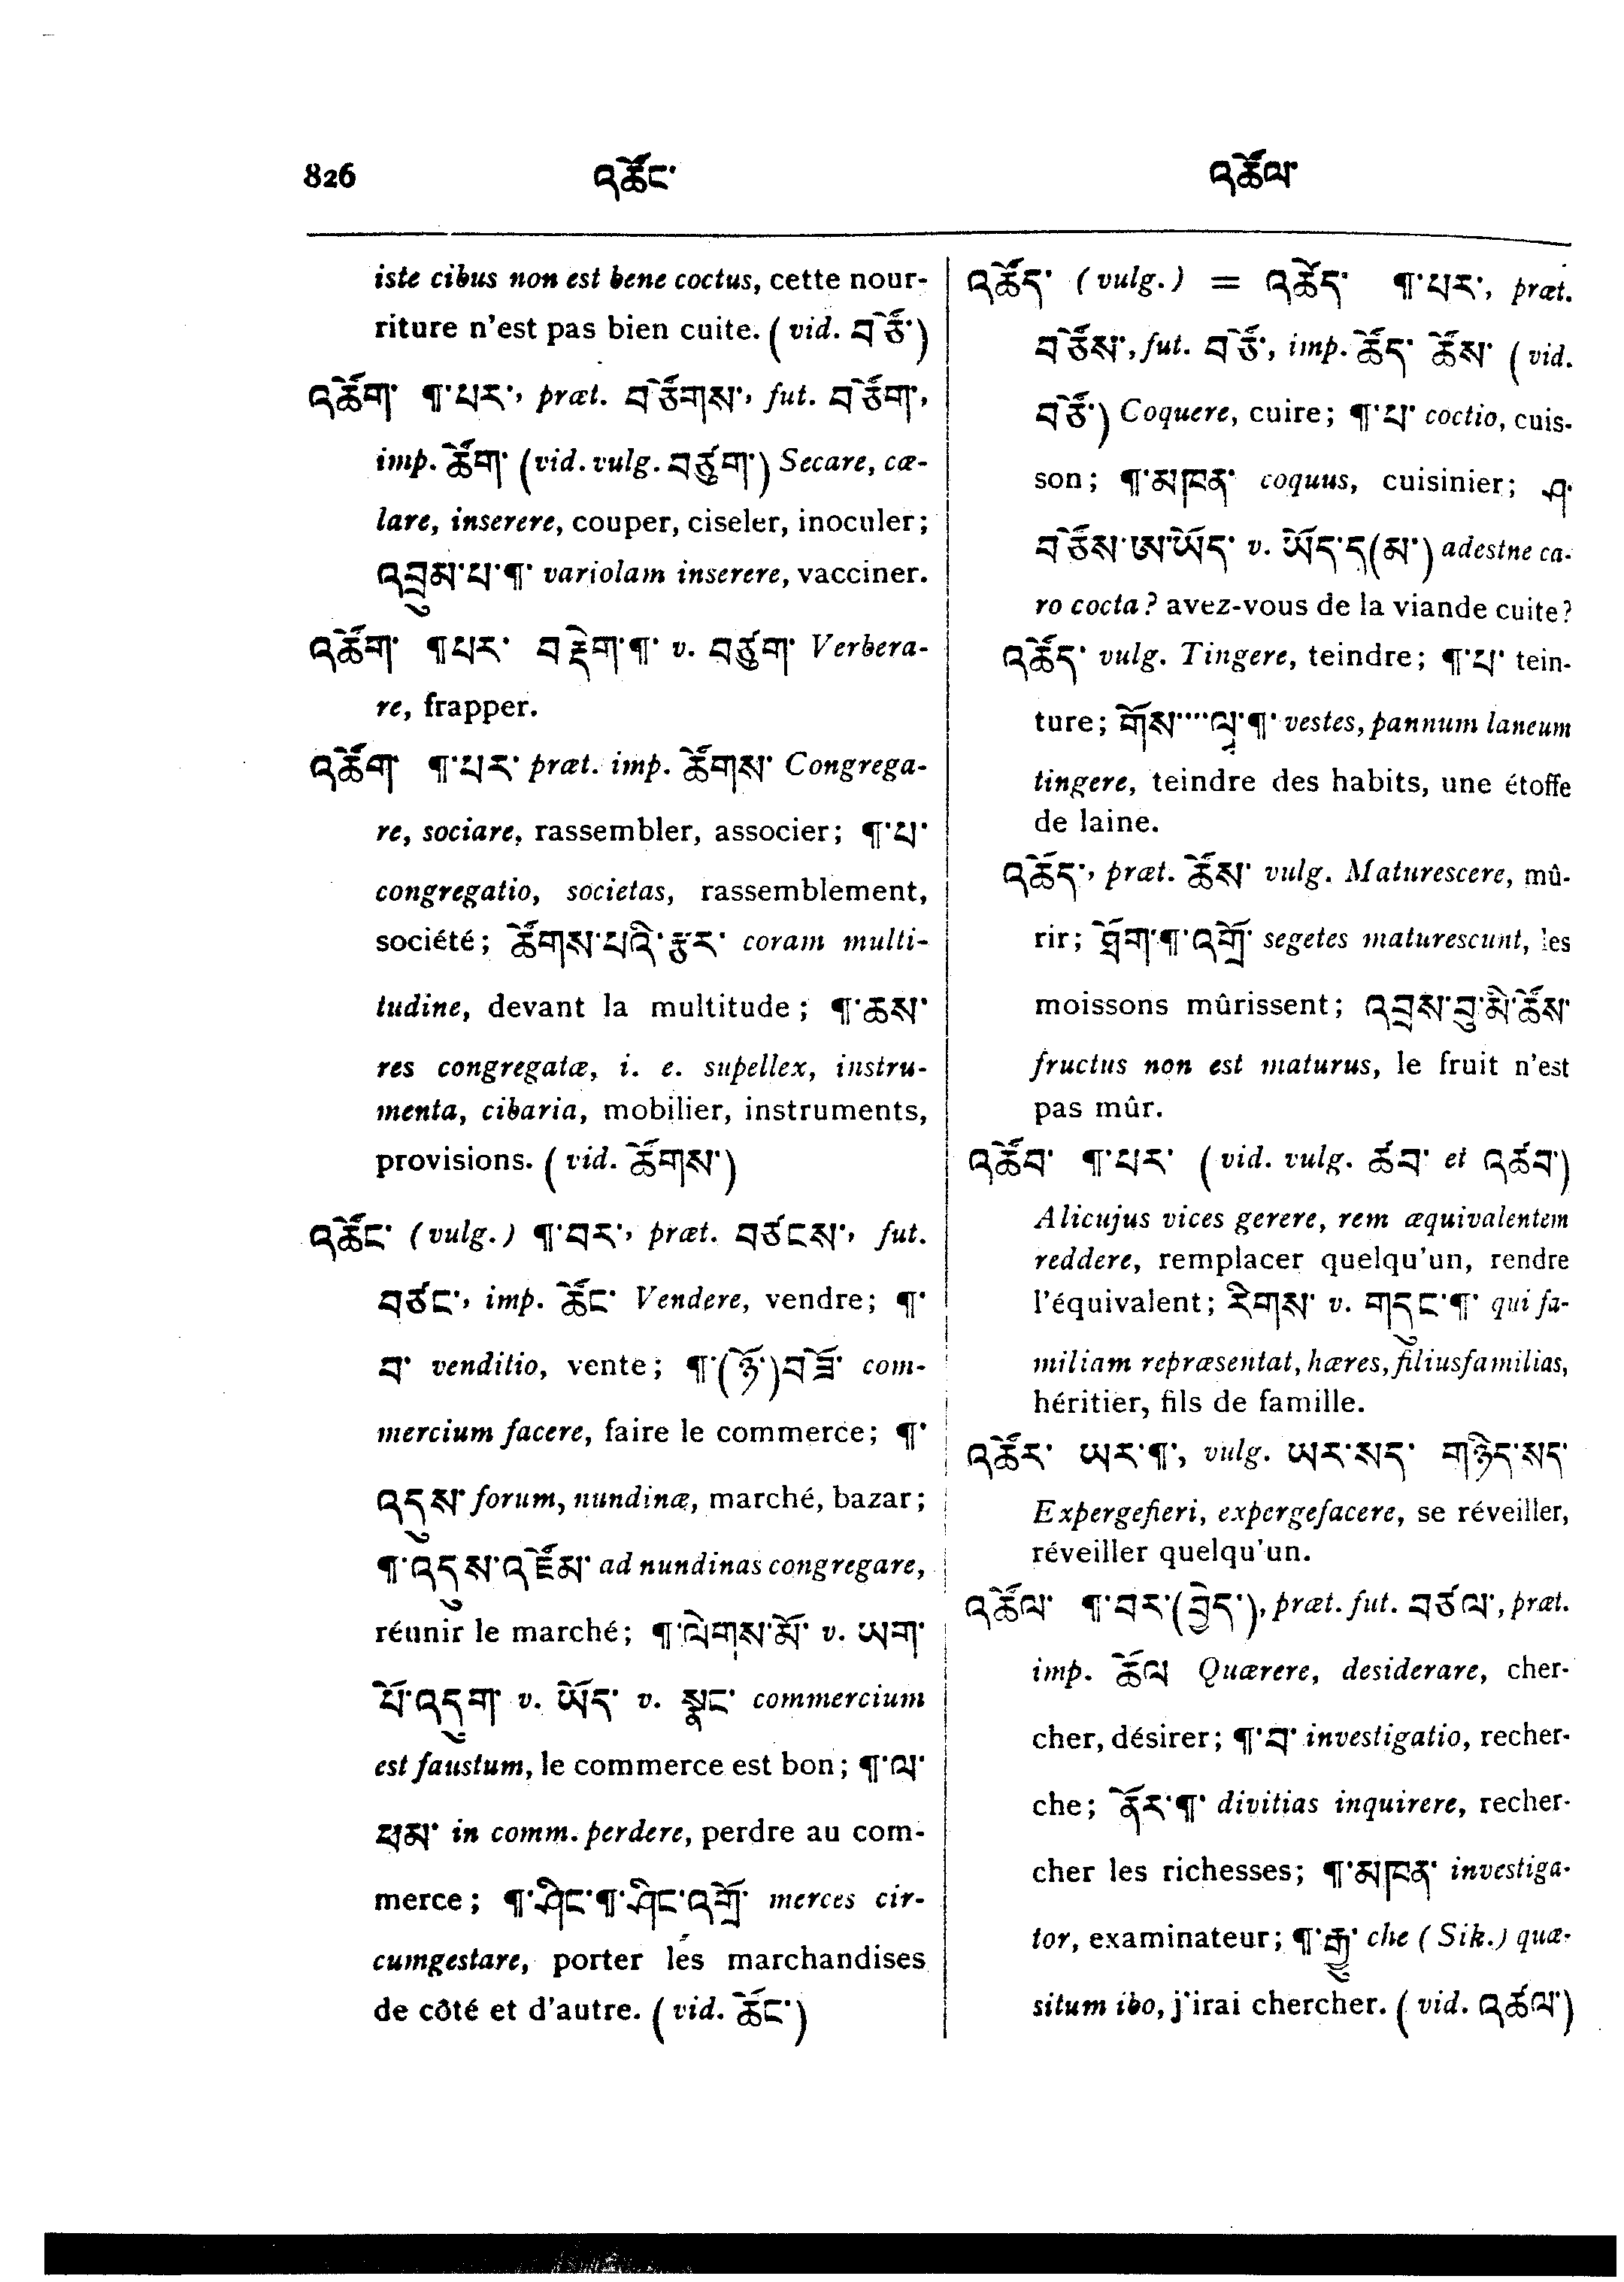 826 འཚོང་ འཚོལ་
iste cibus non est bene coctus, cette nour-
riture n'est pas bien cuite. (vid. བཙོ་)
འཚོག་ ¶་པར་, præt. བཙོགས་, fut. བཙོག་,
imp. ཚོག་ (vid. vulg. བཙུག་) Secare, cæ-
lare, inserere, couper, ciseler, inoculer;
འབྲུམ་པ་¶་ variolam inserere, vacciner.
འཚོག་ ¶པར་ བརྡེག་¶་ v. བཙུག་ Verbera-
re, frapper.
འཚོག་ ¶་པར་ præt. imp. ཚོགས་ Congrega-
re, sociare, rassembler, associer; ¶་པ་
congregatio, societas, rassemblement,
société; ཚོགས་པའི་རྩར་ coram multi-
tudine, devant la multitude; ¶་ཆས་
res congregatæ, i. e. supellex, instru-
menta, cibaria, mobilier, instruments,
provisions. (vid. ཚོགས་)
འཚོང་ (vulg.) ¶་བར་, præt. བཙངས་, fut.
བཙང་, imp. ཚོང་ Vendere, vendre; ¶་
བ་ venditio, vente; ¶་(ཉོ་)བཟོ་ com-
mercium facere, faire le commerce; ¶་
འདུས་ forum, nundinæ, marché, bazar;
¶་འདུས་འཛོམ་ ad nundinas congregare,
réunir le marché; ¶་ལེགས་མོ་ v. ཡག་
པོ་འདུག་ v. ཡོད་ v. སྣང་ commercium
est faustum, le commerce est bon; ¶་ལ་
ཕམ་ in comm. perdere, perdre au com-
merce; ¶་ཤིང་¶་ཤིང་འགྲོ་ merces cir-
cumgestare, porter les marchandises
de côté et d'autre. (vid. ཚོང་)
འཚོད་ (vulg.) = འཚེད་ ¶་པར་, præt.
བཙོས་, fut. བཙོ་, imp. ཚོད་ ཚོས་ (vid.
བཙོ་) Coquere, cuire; ¶་པ་ coctio, cuis-
son; ¶་མཁན་ coquus, cuisinier; ཤ་
བཙོས་ཨ་ཡོད་ v. ཡོད་ད(མ་) adestne ca-
ro cocta? avez-vous de la viande cuite?
འཚོད་ vulg. Tingere, teindre; ¶་པ་ tein-
ture; གོས་...ལྭ་¶་ vestes, pannum laneum
tingere, teindre des habits, une étoffe
de laine.
འཚོད་, præt. ཚོས་ vulg. Maturescere, mû-
rir; ཐོག་¶་འགྲོ་ segetes maturescunt, les
moissons mûrissent; འབྲས་བུ་མི་ཚོས་
fructus non est maturus, le fruit n'est
pas mûr.
འཚོབ་ ¶་པར་ (vid. vulg. ཚབ་ et འཚབ་)
Alicujus vices gerere, rem æquivalentem
reddere, remplacer quelqu'un, rendre
l'équivalent; རིགས་ v. གདུང་¶་ qui fa-
miliam repræsentat, hæres, filiusfamilias,
héritier, fils de famille.
འཚོར་ ཡར་¶་, vulg. ཡར་སད་ གཉིད་སད་
Expergefieri, expergefacere, se réveiller,
réveiller quelqu'un.
འཚོལ་ ¶་བར་(བྱེད་), præt. fut. བཙལ་, præt.
imp. ཚོལ Quærere, desiderare, cher-
cher, désirer; ¶་བ་ investigatio, recher-
che; ནོར་¶་ divitias inquirere, recher-
cher les richesses; ¶་མཁན་ investiga-
tor, examinateur; ¶་རྒྱུ་ che (Sik.) quæ-
situm ibo, j'irai chercher. (vid. འཚལ་)